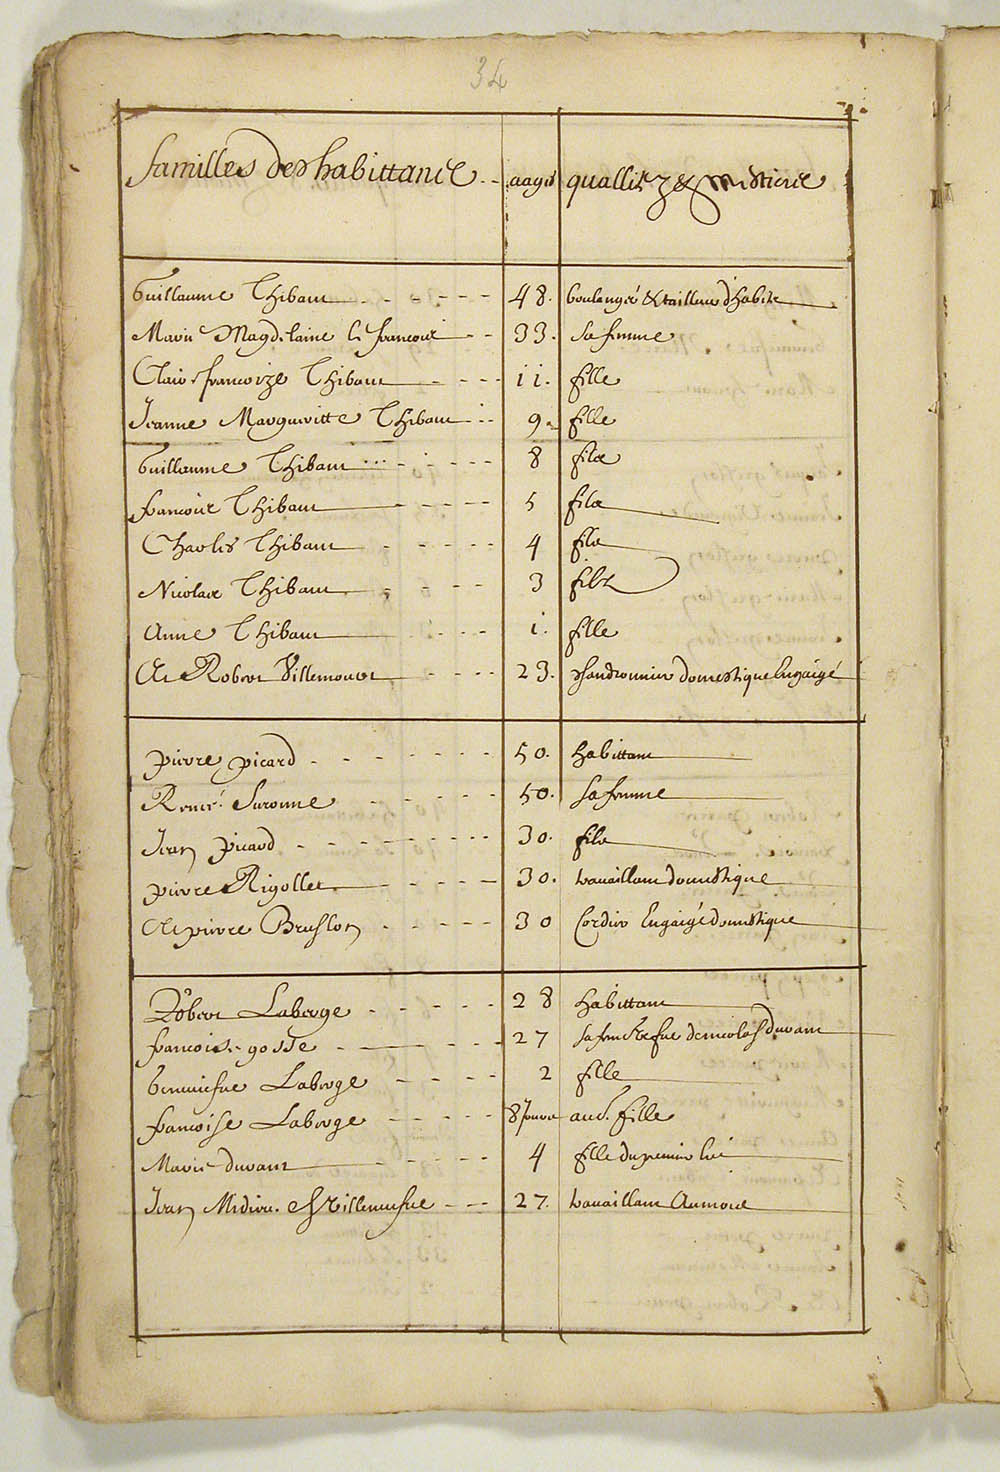 34
familles des habittans aages quallitez & mestiers
Guillaume Thibaut 48. boulanger & tailleur d'habits
Marie Magdelaine le francois 33. sa femme
Claire francoize Thibaut 11. fille
Jeanne Margueritte Thibaut 9. fille
Guillaume Thibaut 8 fils
francois Thibaut 5 fils
Charles Thibaut 4 fils
Nicolas Thibaut 3 filz
Anne Thibaut 1. fille
Et Robert Villemouet 23. chaudronnier domestique Engaigé
pierre picard 50. habittant
Renée Suronne 50. sa femme
Jean picard 30. fils
pierre Rigollet 30. travaillant domestique
Et pierre Bruslon 30 Cordier Engaigé domestique
Robert Laberge 28 habittant
francoise gosse 27 sa fem & vefue de nicolas durant
Geneuiefue Laberge 2 fille
francoise Laberge 8 Jours aud. fille
Marie durant 4 fille du premier lict
Jean Mediou. Villeneufue 27. travaillant Aumoie